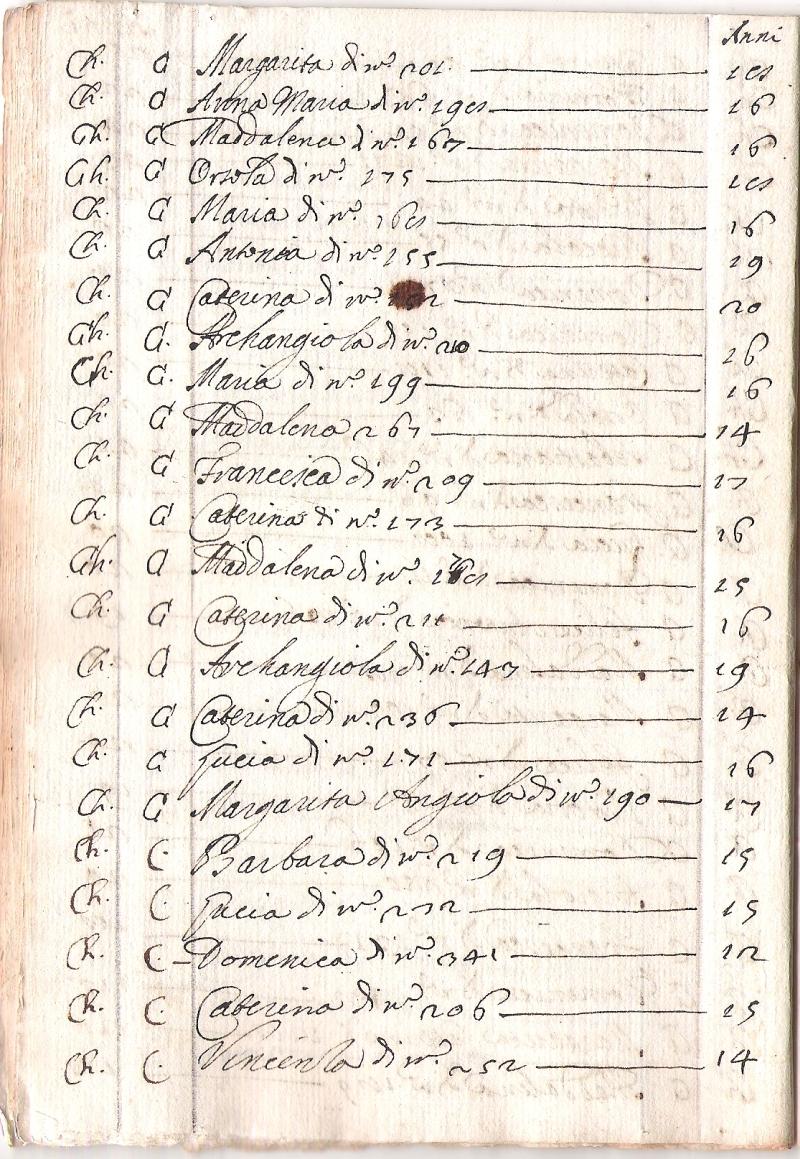 Anni
Ch. C Margarita di nº. 201. 18
Ch. C Anna Maria di nº. 198 16
Ch. C Maddalena di nº. 167 16
Ch. C Orsola di nº. 175 18
Ch. C Maria di nº. 168 16
Ch. C Antonia di nº. 155 19
Ch. C Caterina di nº. 20
Ch. C. Archangiola di nº. 16
Ch. C. Maria di nº. 199 16
Ch. C Maddalena 267 14
Ch. C Francesca di nº. 209 17
Ch. C Caterina di nº. 173 16
Ch. C Maddalena di nº. 15
Ch. C Caterina di nº. 211 16
Ch. C Archangiola di nº. 147 19
Ch. C Caterina di nº. 236 14
Ch. C Lucia di nº. 171 16
Ch. C Margarita Angiola di nº. 190 17
Ch. C. Barbara di nº. 219 15
Ch. C. Lucia di nº. 232 15
Ch. C. Domenica di nº. 341 12
Ch. C. Caterina di nº. 206 15
Ch. C. Vincenza di nº. 252 14